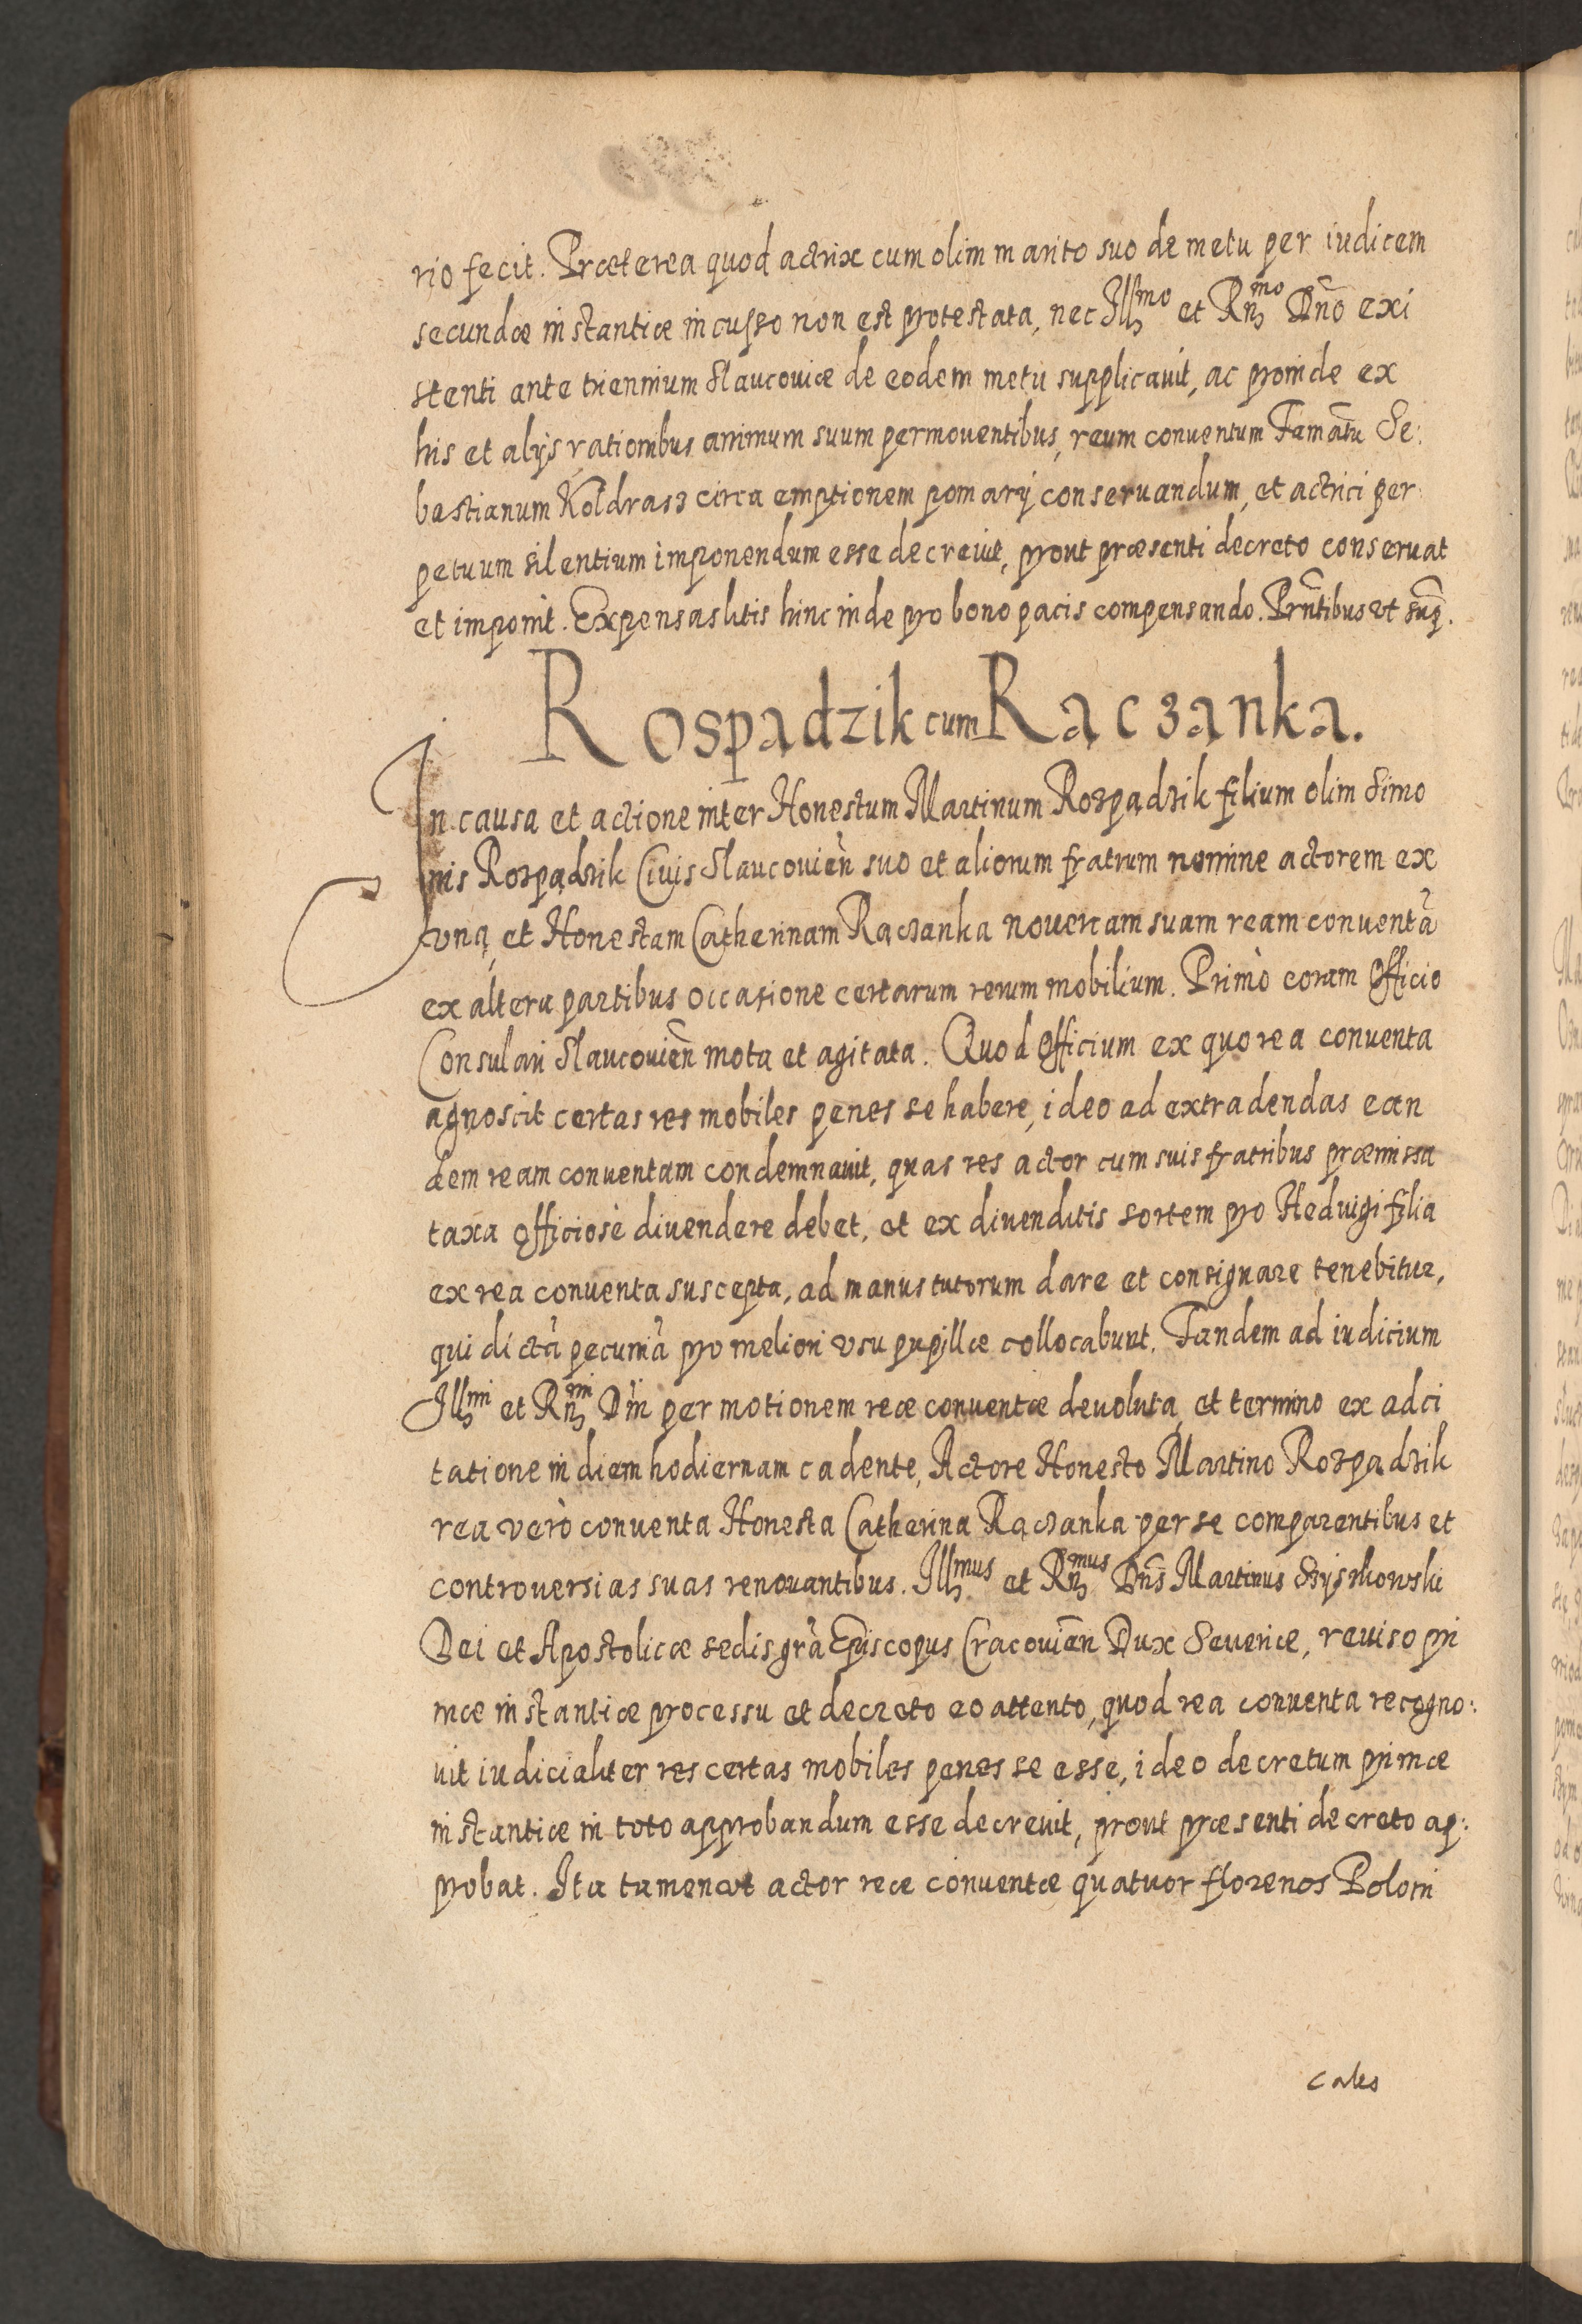 rio fecit. Præterea quod actrix cum olim marito suo de metu per iudicem
secundæ instantiæ incusso non est protestata, nec Illmo et Rnmo Dño exi
stenti ante triennium Slaucouiæ de eodem metu supplicauit, ac proinde ex
his et alijs rationibus animum suum permouentibus, reum conuentum Famãtũ Se:
bastianum Koldrasz circa emptionem pomarij conseruandum, et actrici per:
petuum silentium imponendum esse decreuit, prout præsenti decreto conseruat
et imponit. Expensas litis hinc inde pro bono pacis compensando. Prñtibus vt sup̃.
Rospądzik cum Rączanka.
In causa et actione inter Honestum Martinum Rospądzik filium olim Simo
nis Rospądzik Ciuis Slaucouieñ suo et aliorum fratrum nomine actorem ex
vna, et Honestam Catherinam Rączanka nouercam suam ream conuentã
ex altera partibus occasione certarum rerum mobilium. Primò coram Officio
Consulari Slaucouieñ mota et agitata. Quod Officium ex quo rea conuenta
agnoscit certas res mobiles penes se habere, ideo ad extradendas ean
dem ream conuentam condemnauit, quas res actor cum suis fratribus præmissa
taxa Officiosè diuendere debet, et ex diuenditis sortem pro Heduigi filia
ex rea conuenta suscepta, ad manus tutorum dare et consignare tenebitur,
qui dictã pecuniã pro meliori vsu pupillæ collocabunt. Tandem ad iudicium
Illmi et Rnmi Dñi per motionem reæ conuentæ deuoluta, et termino ex adci
tatione in diem hodiernam cadente, Actore Honesto Martino Rospądzik
rea verò conuenta Honesta Catherina Rączanka per se comparentibus et
controuersias suas renouantibus. Illmus et Rnmus Dñs Martinus Szyszkowski
Dei et Apostolicæ sedis grã Episcopus Cracouieñ Dux Seueriæ, reuiso pri
mæ instantiæ processu et decreto eo attento, quod rea conuenta recogno:
uit iudicialiter res certas mobiles penes se esse, ideo decretum primæ
instantiæ in toto approbandum esse decreuit, prout præsenti decreto ap:
probat. Ita tamen vt actor reæ conuentæ quatuor florenos Poloni
cales